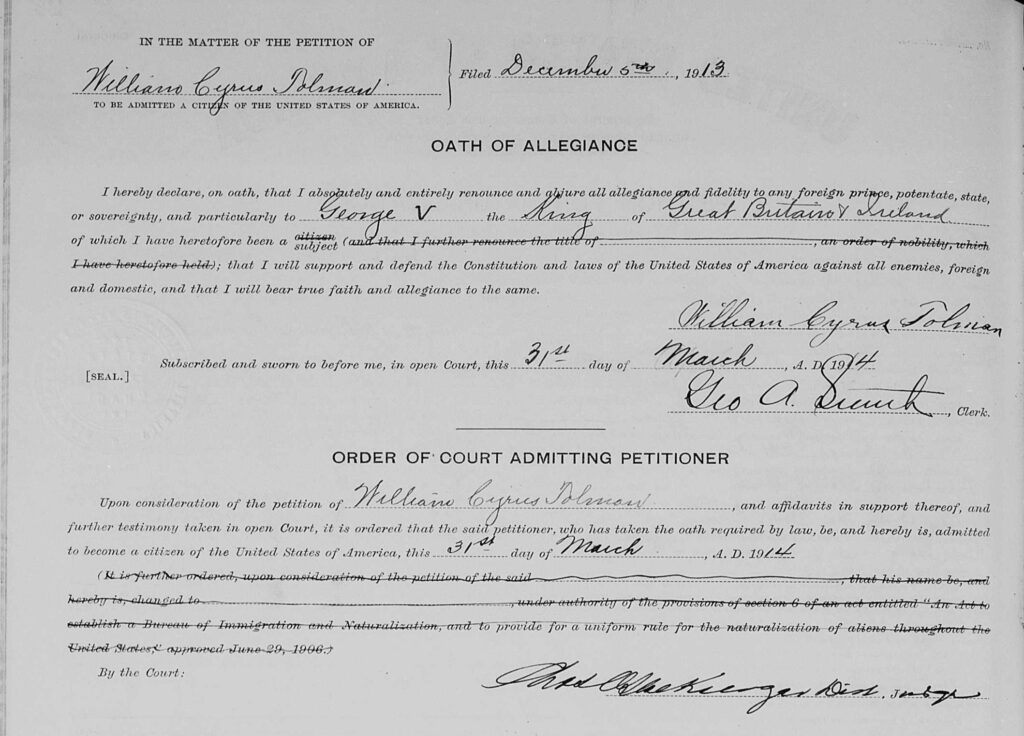 IN THE MATTER OF THE PETITION OF
William Cyrus Tolman
TO BE ADMITTED A CITIZEN OF THE UNITED STATES OF AMERICA.
Filed December 5th, 1913
OATH OF ALLEGIANCE
I hereby declare, on oath, that I absolutely and entirely renounce and abjure all allegiance and fidelity to any foreign prince, potentate, state,
or sovereignty, and particularly to George V the King of Great Britain & Ireland
of which I have heretofore been a citizen subject (and that I further renounce the title of , an order of nobility, which
I have heretofore held); that I will support and defend the Constitution and laws of the United States of America against all enemies, foreign
and domestic, and that I will bear true faith and allegiance to the same.
William Cyrus Tolman
Subscribed and sworn to before me, in open Court, this 31st day of March, A. D. 1914
[SEAL.]
Geo A. , Clerk.
ORDER OF COURT ADMITTING PETITIONER
Upon consideration of the petition of William Cyrus Tolman, and affidavits in support thereof, and
further testimony taken in open Court, it is ordered that the said petitioner, who has taken the oath required by law, be, and hereby is, admitted
to become a citizen of the United States of America, this 31st day of March, A. D. 1914
(It is further ordered, upon consideration of the petition of the said , that his name be, and
hereby is, changed to , under authority of the provisions of section 6 of an act entitled "An Act to
establish a Bureau of Immigration and Naturalization, and to provide for a uniform rule for the naturalization of aliens throughout the
United States," approved June 29, 1906.)
By the Court:
Dist. Judge